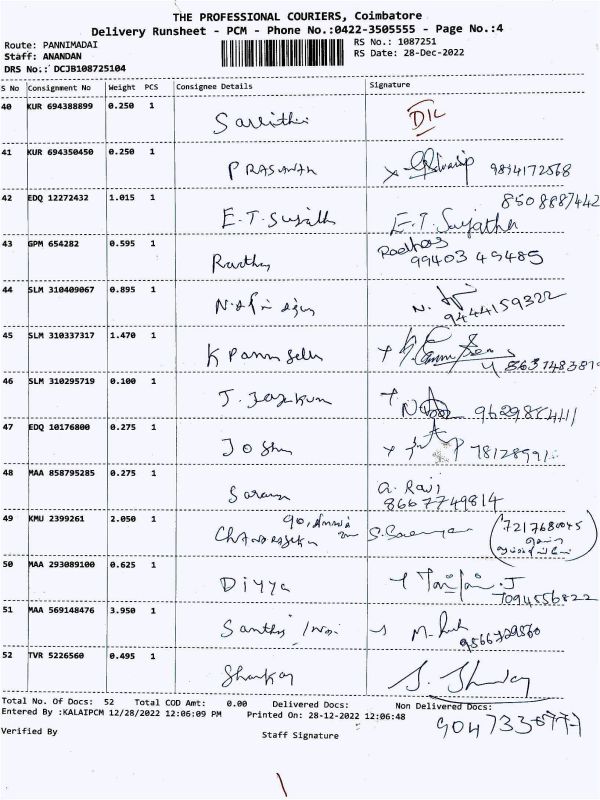 THE PROFESSIONAL COURIERS, Coimbatore
Delivery Runsheet - PCM - Phone No.:0422-3505555 - Page No.:4
Route: PANNIMADAI
RS No.: 1087251
Staff: ANANDAN
RS Date: 28-Dec-2022
DRS No.: DCJB108725104
S No Consignment No Weight PCS Consignee Details Signature
40 KUR 694388899 0.250 1
41 KUR 694350450 0.250 1 PRASANTH 9894172568
8508887442
42 EDQ 12272432 1.015 1 E.T. Sujatha E.T. Sujatha
43 GPM 654282 0.595 1 Radha
99403 49485
44 SLM 310409067 0.895 1 N. 9444159322
45 SLM 310337317 1.470 1 K Pannir Selva
46 SLM 310295719 0.100 1 J. Jaykum
47 EDQ 10176800 0.275 1 Joshu
48 MAA 858795285 0.275 1 Saran a. Ravi
8667749814
49 KMU 2399261 2.050 1 7217680045
50 MAA 293089100 0.625 1 Divya 7094556822
51 MAA 569148476 3.950 1 Santhi 9566729560
52 TVR 5226560 0.495 1 Shankar S. Shankar
Total No. Of Docs: 52 Total COD Amt: 0.00 Delivered Docs: Non Delivered Docs:
Entered By :KALAIPCM 12/28/2022 12:06:09 PM Printed On: 28-12-2022 12:06:48
Verified By Staff Signature